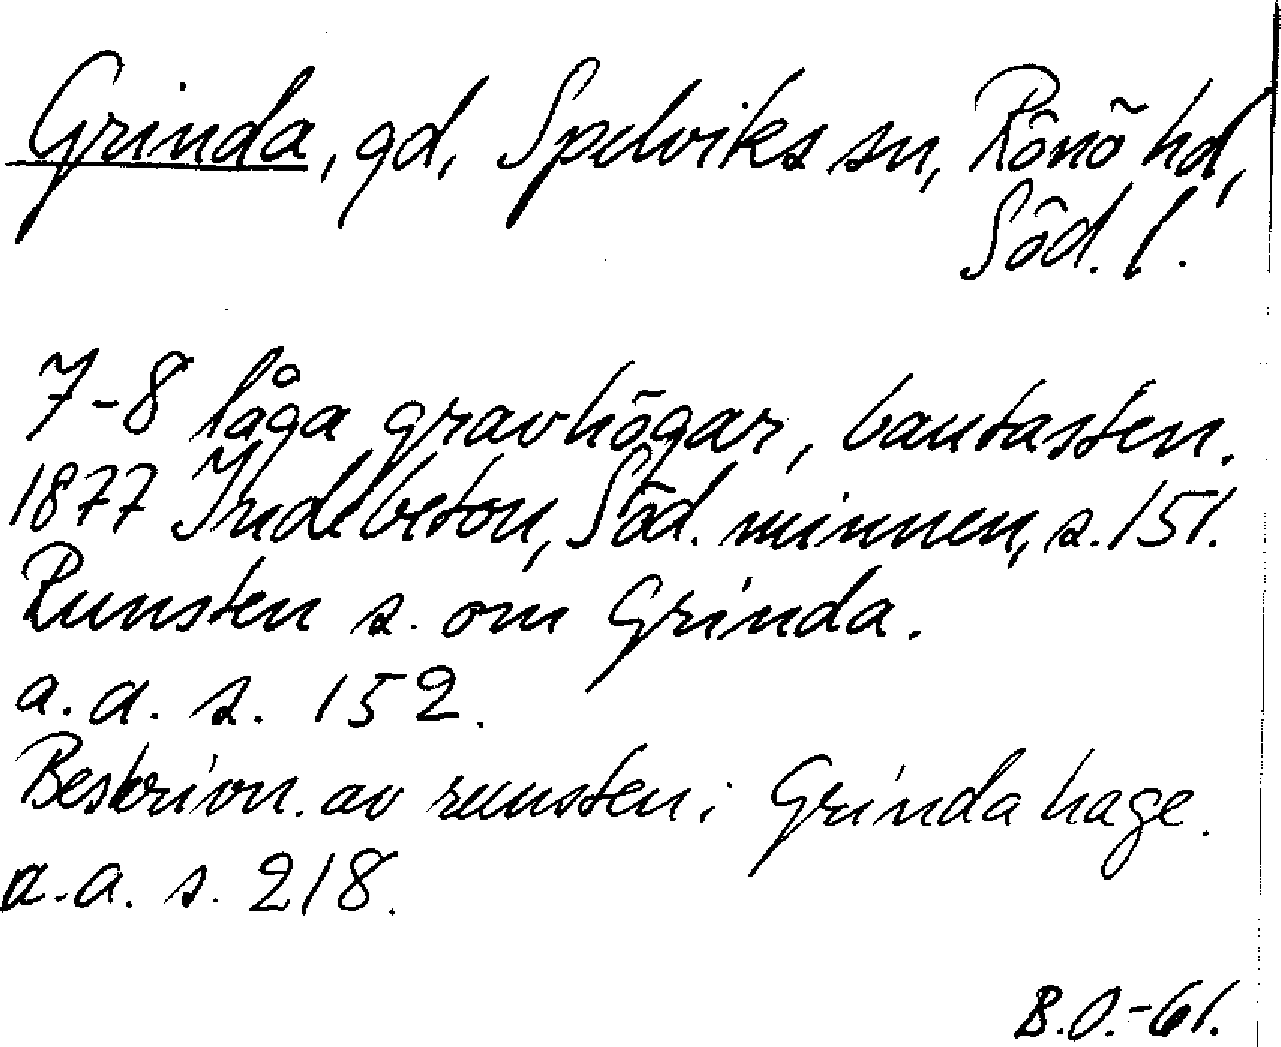 Grinda, gd, Spelviks sn, Rönö hd,
Söd. l.
7-8 låga gravhögar, bautasten.
1877 Indebetou, Söd. minnen, s. 151.
Runsten s. om Grinda.
a. a. s. 152.
Beskrivn. av runsten i Grinda hage.
a. a. s. 218.
B.O.-61.